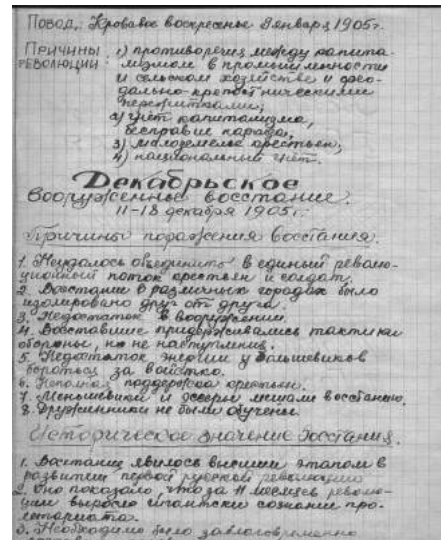 Повод: Кровавое воскресенье 9 января 1905г.
Причины революции: 1) противоречия между капита-
лизмом в промышленности
и сельском хозяйстве и фео-
дально-крепостническими
пережитками;
2) гнёт капитализма,
бесправие народа;
3) малоземелье крестьян;
4) национальный гнёт.
Декабрьское
вооружённое восстание.
11-18 декабря 1905г.
Причины поражения восстания.
1. Неудалось объединить в единый револю-
ционный поток крестьян и солдат.
2. Восстание в различных городах было
изолировано друг от друга.
3. Недостаток в вооружении.
4. Восставшие придерживались тактики
обороны, но не наступления.
5. Недостаток энергии у большевиков
бороться за войско.
6. поддержка крестьян.
7. Меньшевики и эсеры мешали восстанию.
8. Дружинники не были обучены.
Историческое значение восстания.
1. Восстание явилось высшим этапом в
развитии первой русской революции
2. Оно показало, что за 11 месяцев револю-
ции выросло гигантски сознание про-
летариата.
3. Необходимо было заблаговременно